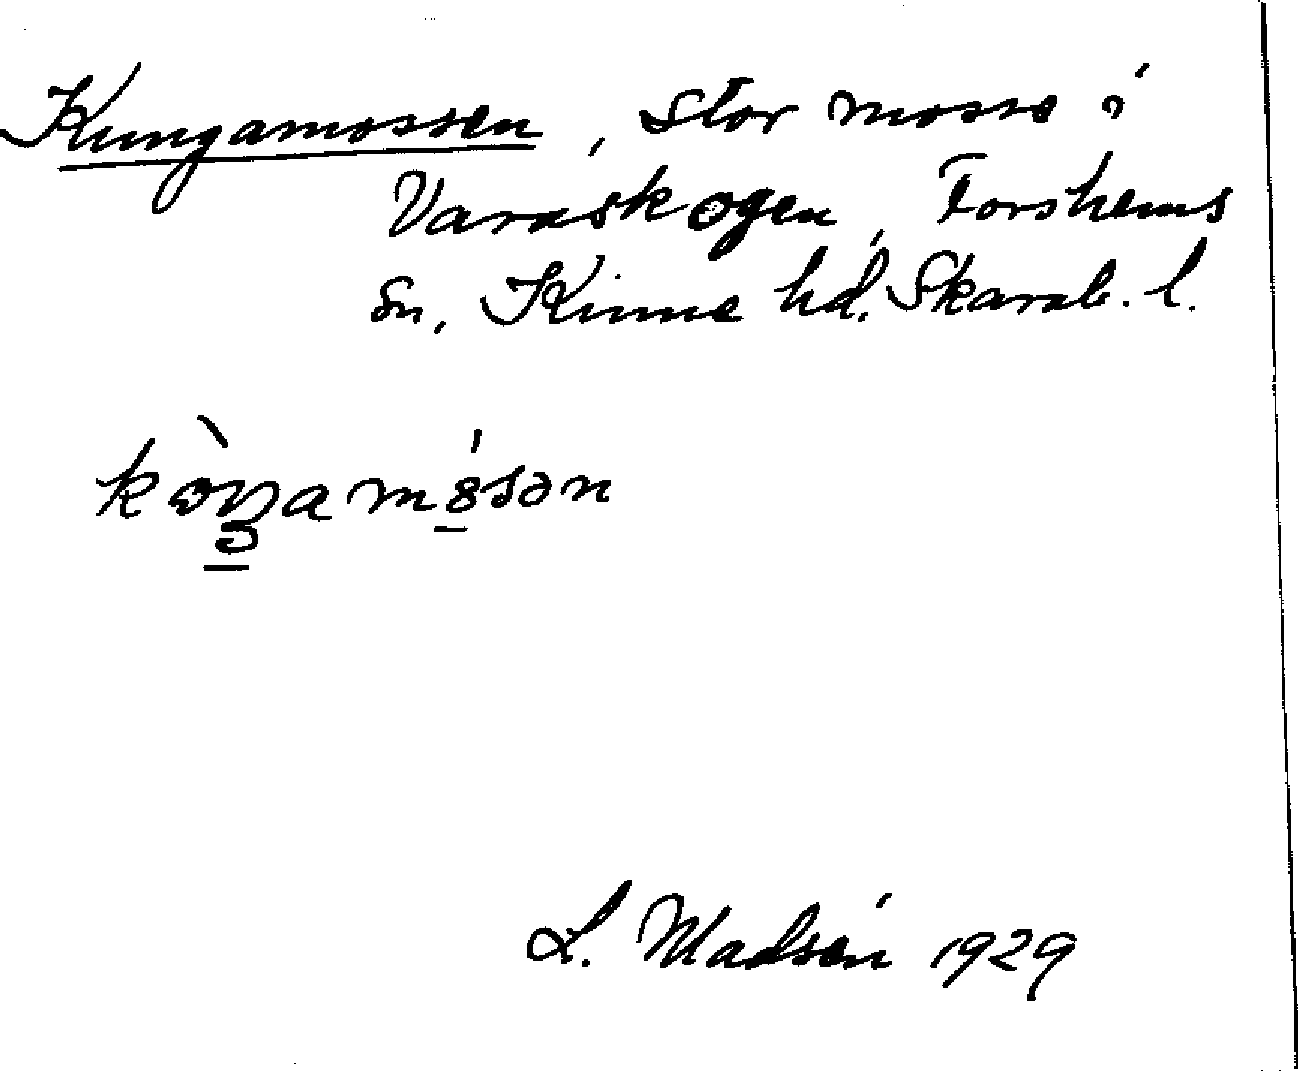 Kungamossen, stor mosse i
Varaskogen, Forshems
sn, Kinne hd. Skarab. l.
L. Madsén 1929